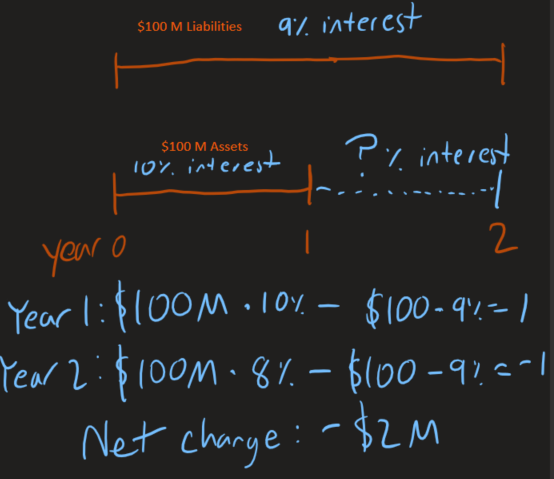 $100 M Liabilities 9% interest
$100 M Assets
10% interest ? % interest
year 0 1 2
Year 1: $100M · 10% - $100 - 9% = 1
Year 2: $100M · 8% - $100 - 9% = -1
Net change: -$2M